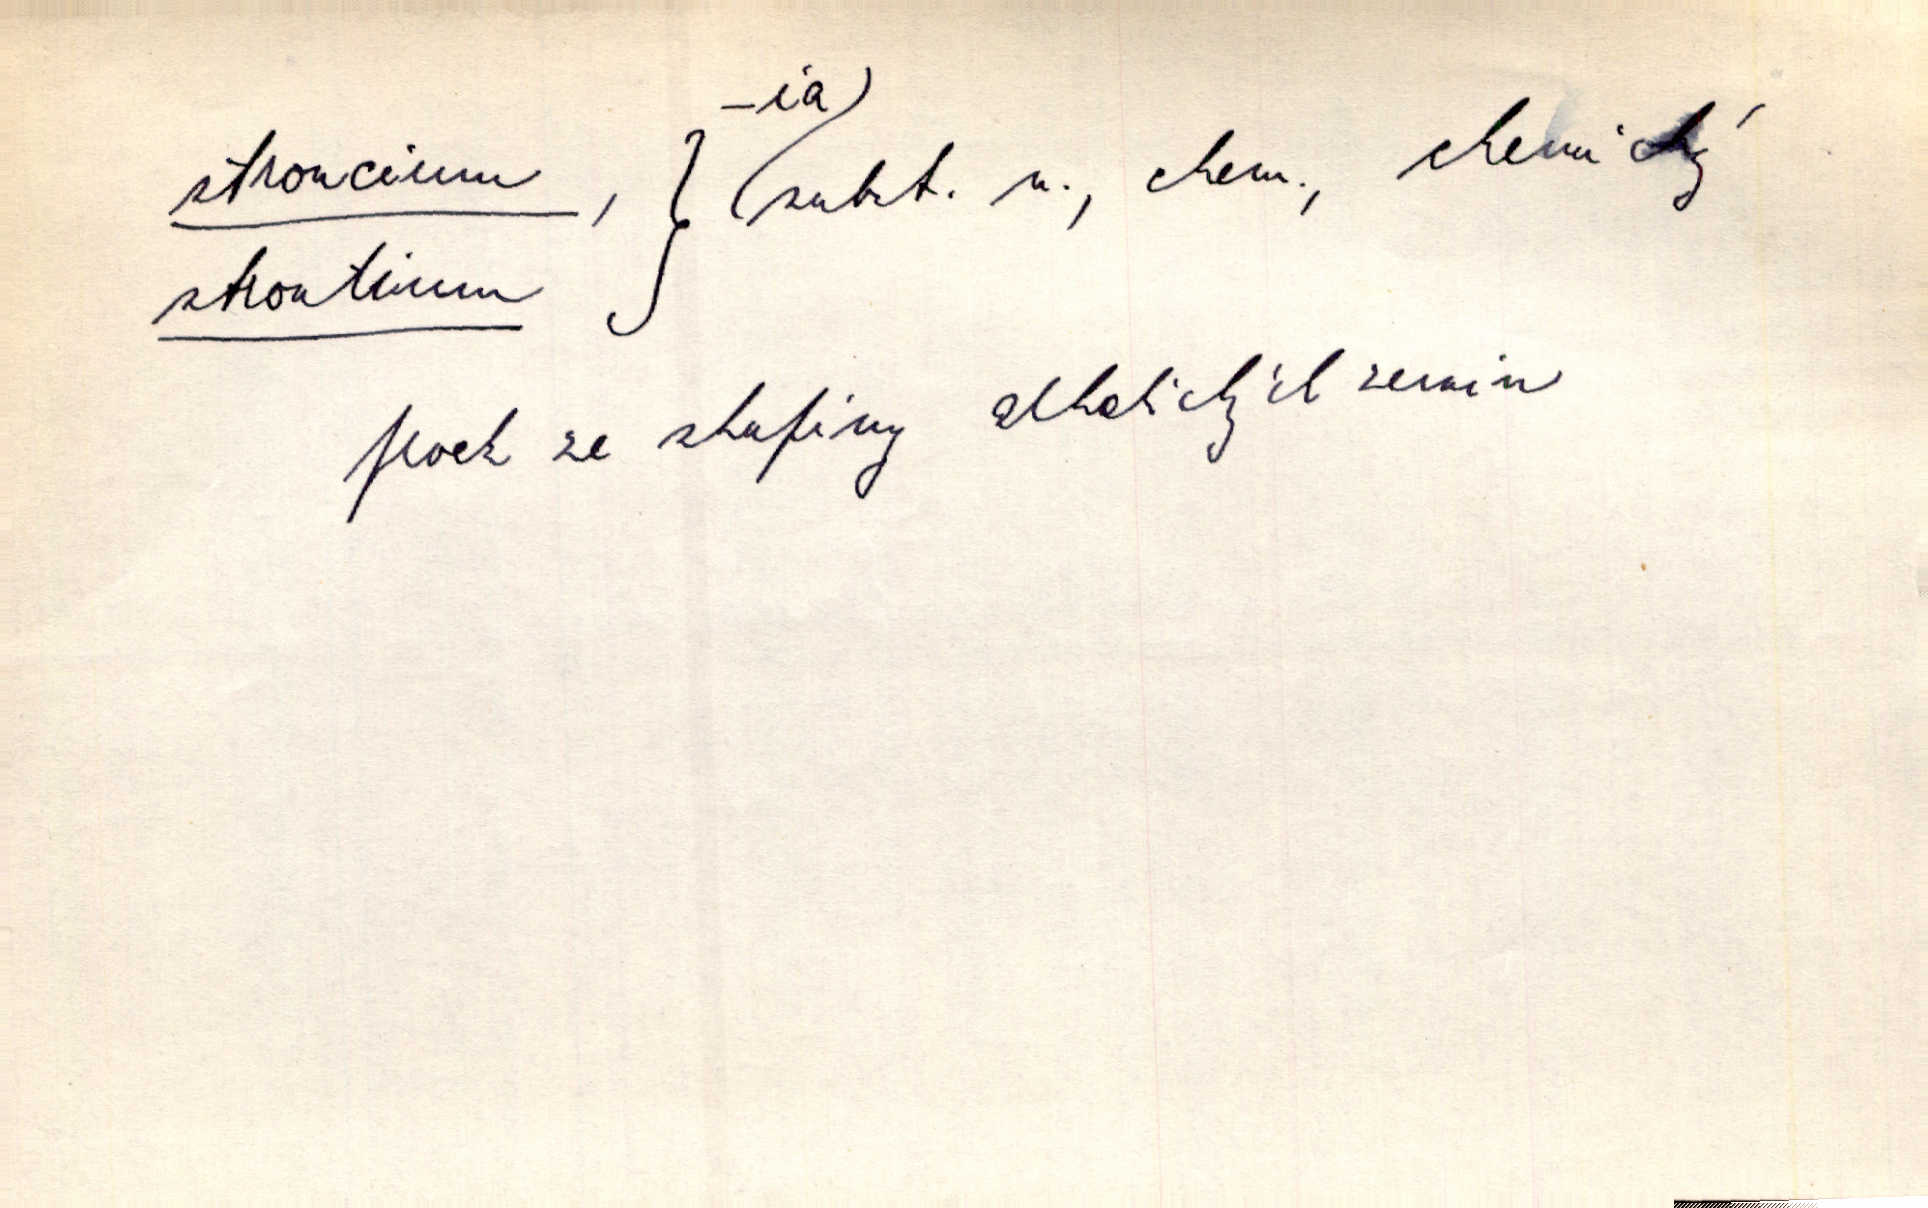 stroncium, } -ia) subst. n., chem., chemický
strontium
prvek ze skupiny alkalických zemin